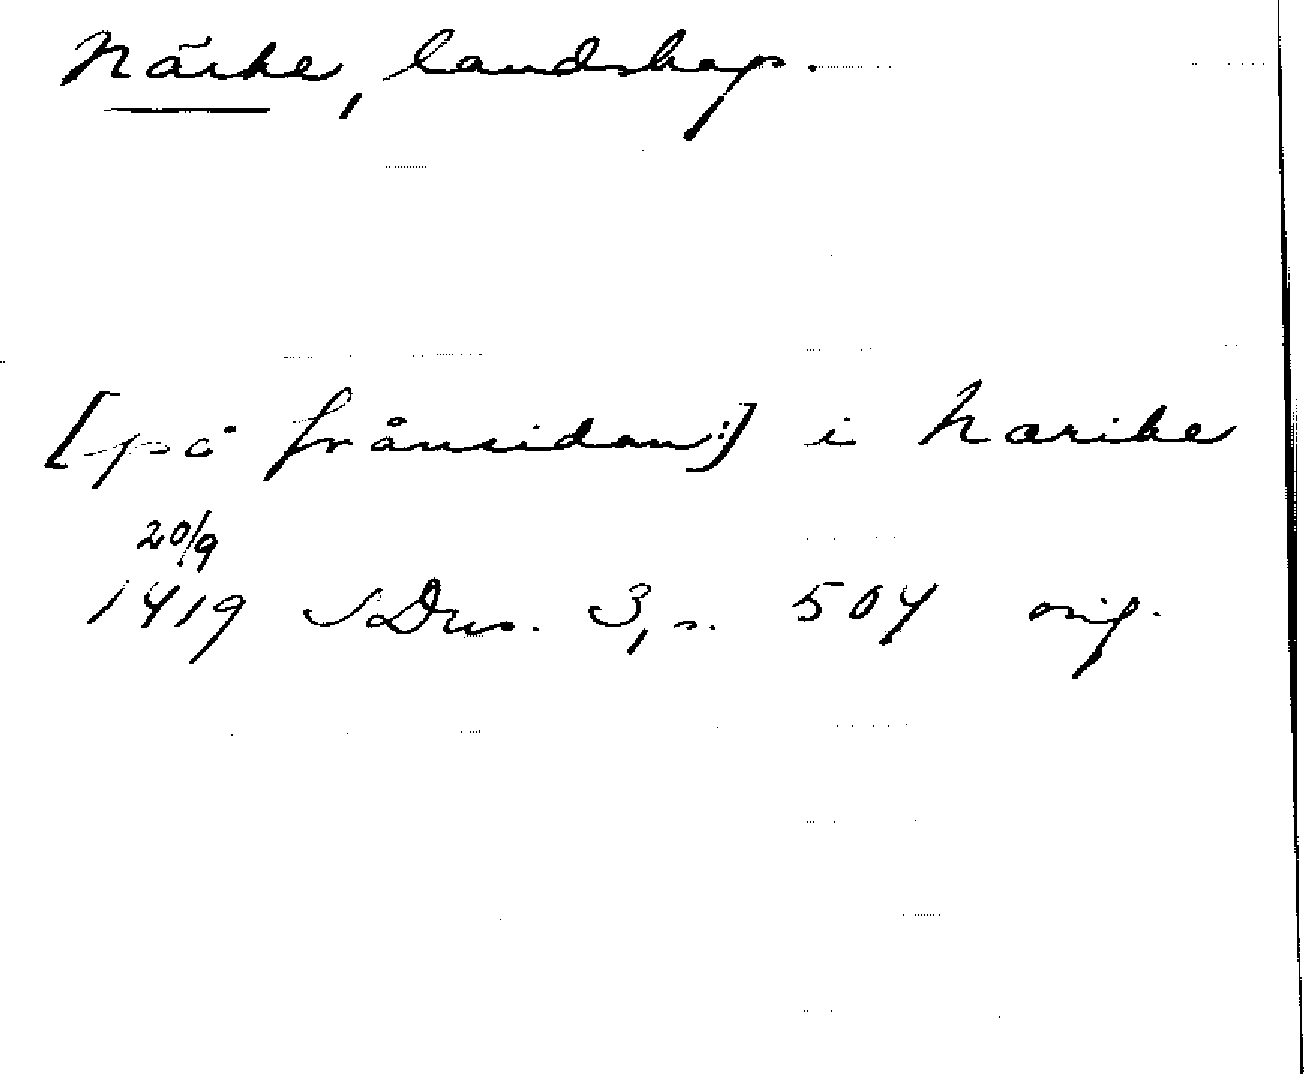 Närke, landskap.
[på frånsidan:] i Narike
20/9
1419 SDns. 3, s. 504 orig.